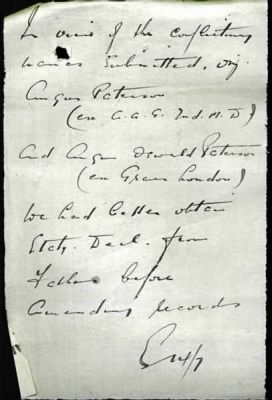 In view of the conflicting
names submitted, viz
Angus Paterson
(en A.A.G. 2nd. M.D)
and Angus Oswald Paterson
(en Graves London)
We had better obtain
Stat. Decl. from
Father before
amending records
14/7